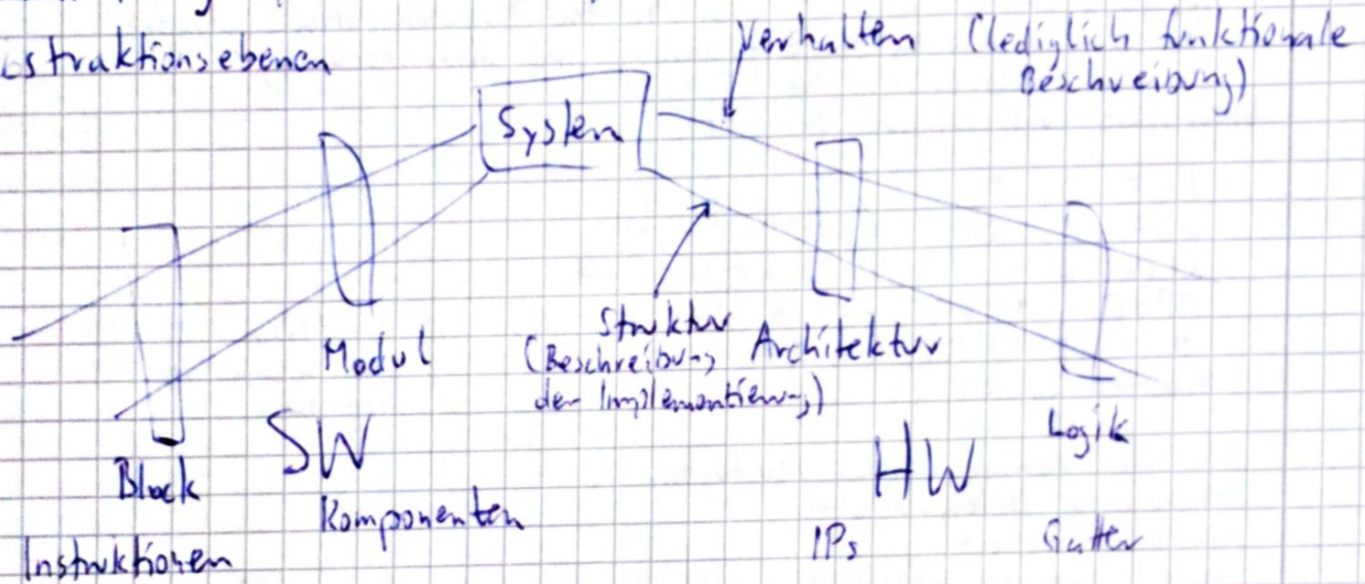 straktionsebenen
Verhalten (lediglich funktionale
Beschreibung)
System
Modul
Struktur
(Beschreibung
der Implementierung)
Architektur
Block
SW
HW
Logik
Komponenten
Instruktionen
IPs
Gatter